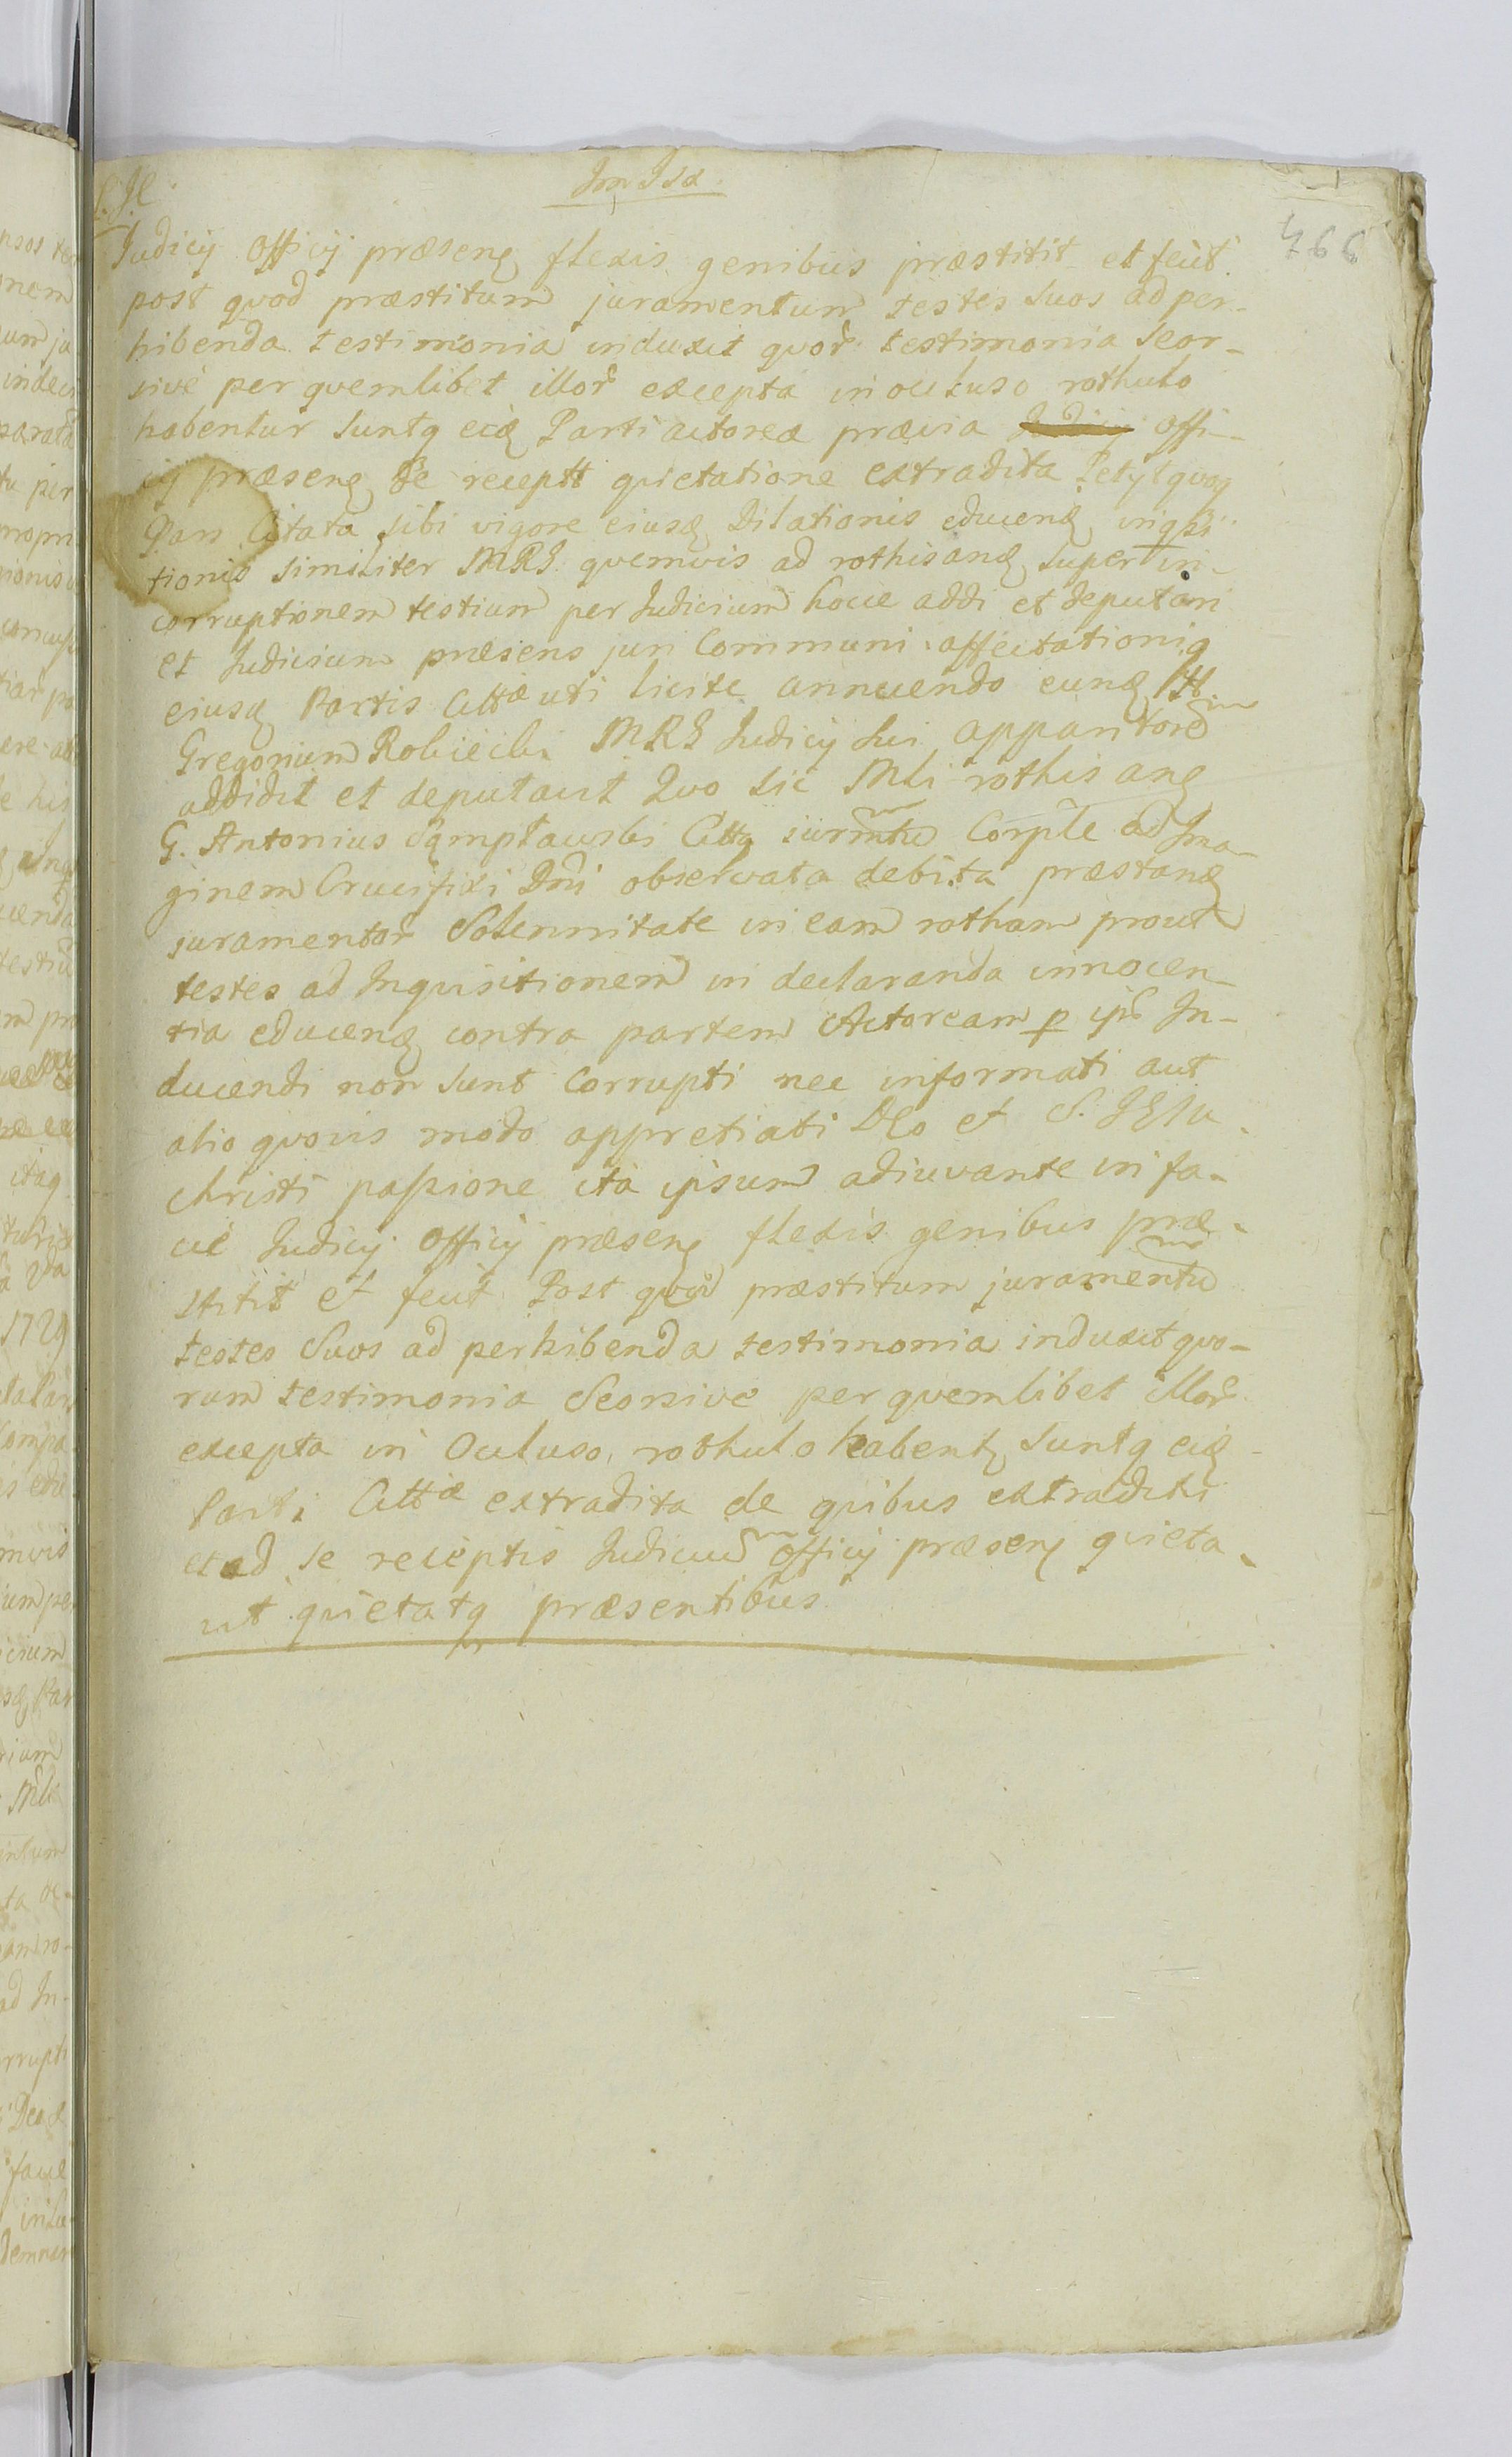 Judicij officij præsenꝭ flexis genibus præstitit et feũt.
post quod præstitum juramentum testes suos ad per-
hibenda testimonia induxit quor̃ testimonia Seor-
sive per quemlibet illor̃ excepta in occluso rothulo
habentur Suntq eid Parti actoreæ prævia Judicij offi-
cij præsenꝭ de receptt quietatione extradita Petijt quoq
Pars Citata sibi vigore eiusd Dilationis educend inqsi-
tionis similiter MRS quemvis ad rothisand super in-
corruptionem testium per Judicium hocce addi et deputari
et Judicium præsens juri Communi affectationiq
eiusd Partis Cittæ uti licite annuendo eund H.
Gregorium Robiecki MRS Judicij sui apparitorem
addidit et deputavit Quo sic Mli rothisane
G. Antonius Sąmpławski Citta jurmtu Corple ad Ima-
ginem Crucifixi Dni observata debita præstand
juramentor̃ Solennitate in eam rotham prout
testes ad Inquisitionem in declaranda innocen-
tia educend contra partem Actoream p ipm In-
ducendi non sunt corrupti nec informati aut
alio quovis modo appretiati Deo et S. JESu
Christi passione ita ipsum adiuvante in fa-
cie Judicij officij præsenꝭ flexis genibus præ-
stitit et feũt Post quod præstitum juramentu
testes Suos ad perhibenda testimonia induxit quo-
rum testimonia Seorsive per quemlibet illor̃
excepta in Occluso rothulo habentꝭ Suntq eid
Parti Cittæ extradita de quibus extraditis
et ad se receptis Judiciu officij præsenꝭ quieta-
vit quietatq præsentibus